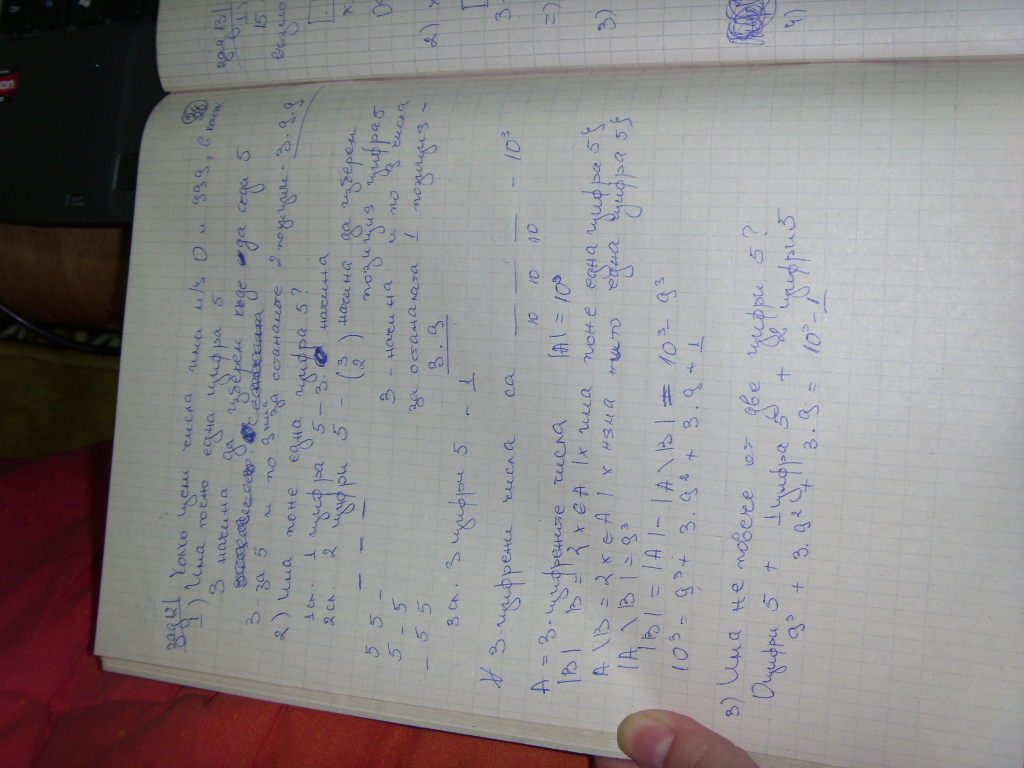 зад 12 | Колко цели числа има м/у 0 и 999, в които
1) Има точно една цифра 5
3 начина да изберем къде да седи 5
3 - за 5 и по 9 начина за останалите 2 позиции - 3.9.9
2) Има поне една цифра 5?
1 сл. 1 цифра 5 - 3 начина
2 сл. 2 цифри 5 - (3 2) начина да изберем
5 5 _ _ _ _ позиция цифра 5
5 - 5 3 - начина и по 9 числа
_ 5 5 за останалата 1 позиция -
3.9
3 сл. 3 цифри 5 - 1
3-цифрени числа са _ _ _ - 10³
10 10 10
A = 3-цифрените числа |A| = 10³
|B| B = { x ∈ A | x има поне една цифра 5 }
A \ B = { x ∈ A | x няма нито една цифра 5 }
|A \ B| = 9³
|B| = |A| - |A \ B| = 10³ - 9³
10³ = 9³ + 3.9² + 3.9 + 1
3) Има не повече от две цифри 5?
0 цифри 5 + 1 цифра 5 + 2 цифри 5
9³ + 3.9² + 3.9 = 10³ - 1
зад 13 |
1)
15
2) x
3.
=)
3)
4)